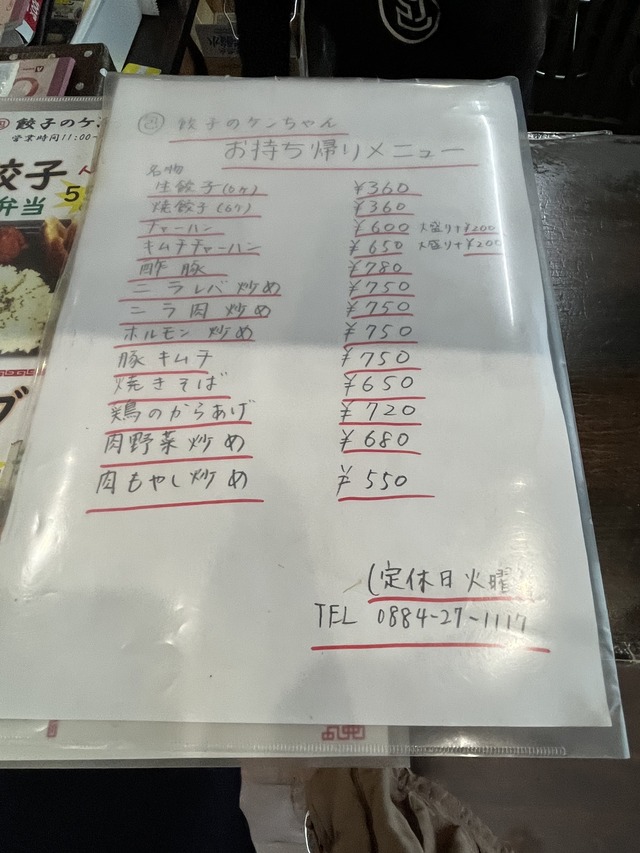 餃子のケンちゃん
お持ち帰りメニュー
名物
生餃子(6ヶ) ¥360
焼餃子(6ヶ) ¥360
チャーハン ¥600 大盛り+¥200
キムチチャーハン ¥650 大盛り+¥200
酢豚 ¥780
ニラレバ炒め ¥750
ニラ肉炒め ¥750
ホルモン炒め ¥750
豚キムチ ¥750
焼きそば ¥650
鶏のからあげ ¥720
肉野菜炒め ¥680
肉もやし炒め ¥550
(定休日火曜)
TEL 0884-27-1117
餃子のケン
営業時間11:00~
餃子
弁当 5